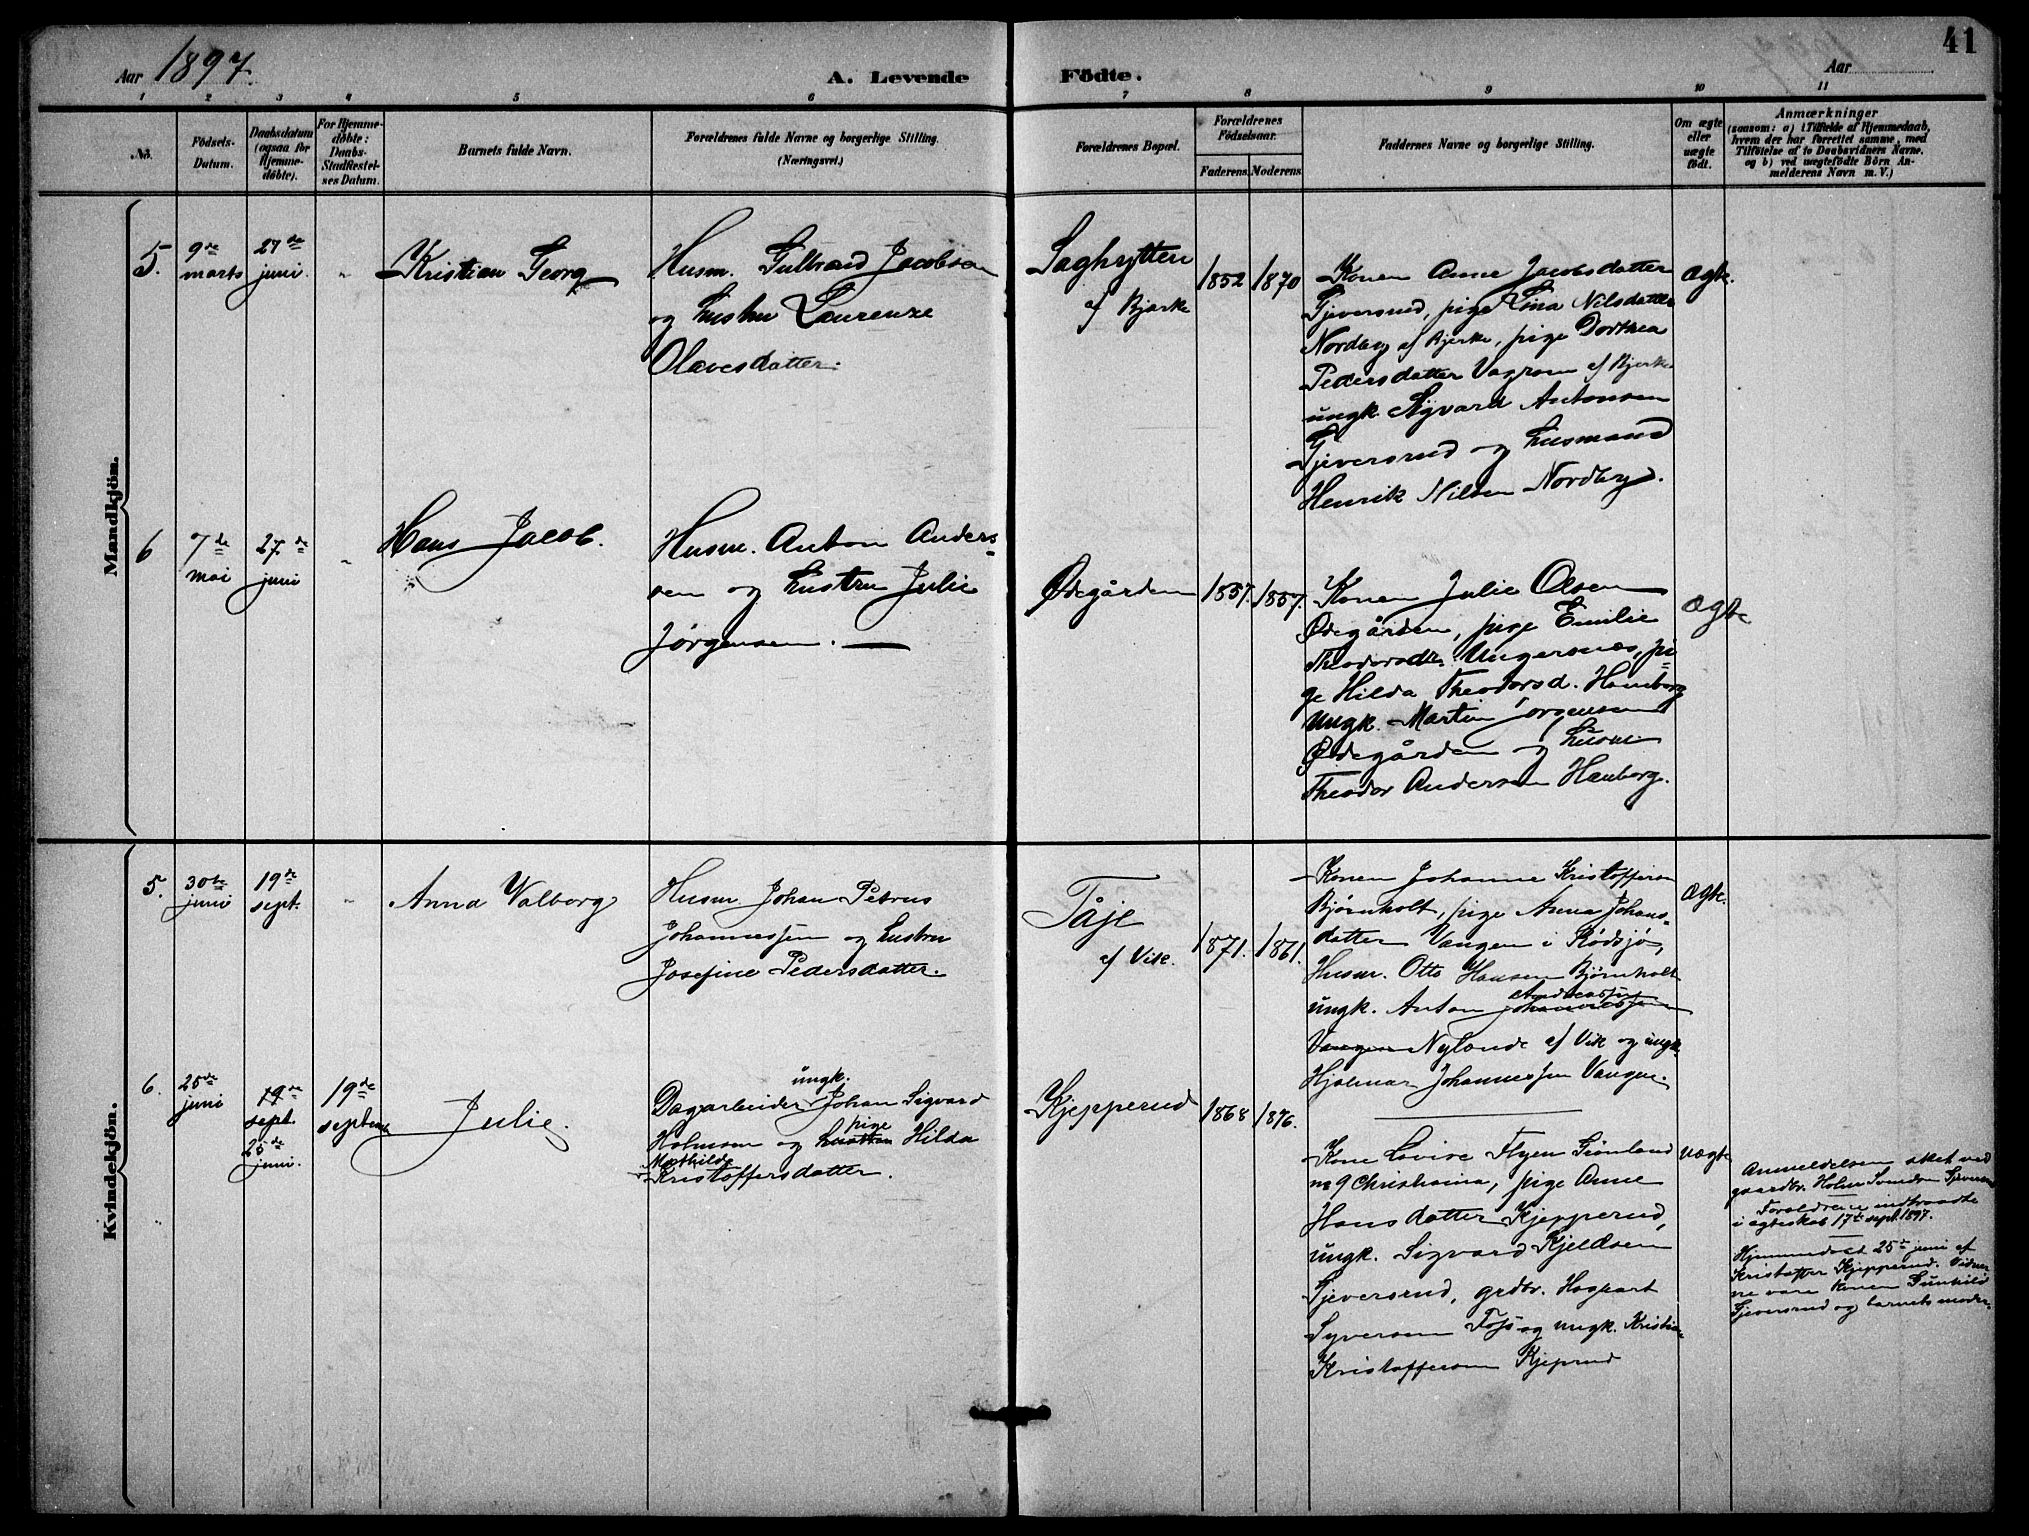 Aar 1897.
A. Levende Födte.
Aar
41
1 2 3 4 5 6 7 8 9 10 11
No.
Födsels-
Datum.
Daabsdatum
(ogsaa for
Hjemme-
döbte).
For Hjemme-
döbte:
Daabs-
Stadfestel-
ses Datum.
Barnets fulde Navn.
Forældrenes fulde Navne og borgerlige Stilling.
(Næringsvei.)
Forældrenes Bopæl.
Forældrenes
Födselsaar.
Faderens. Moderens.
Faddernes Navne og borgerlige Stilling.
Om ægte
eller
uægte
födt.
Anmærkninger
(saasom: a) i Tilfælde af Hjemmedaab,
hvem der har forrettet samme, med
Tilföielse af to Daabsvidners Navne,
og b) ved uægtefödte Börn An-
melderens Navn m. V.)
Mandkjön.
5.
9de
marts
27de
juni
"
Kristian Georg
Husm. Gulbrand Jacobsen
og hustru Laurenze
Olavesdatter.
Saghytten
af Bjerke
1852
1870
Konen Anne Jacobsdatter
Gjeversrud, pige Lina Nilsdatter
Nordby af Bjerke, pige Dorthea
Pedersdatter Vagrom af Bjerke
ungk. Sigvard Antonsen
Gjeversrud og husmand
Henrik Nilsen Nordby.
ægte.
6
7de
mai
27de
juni
"
Hans Jacob.
Husm. Anton Anders-
sen og hustru Julie
Jørgensen.
Ødegården
1857.
1857.
Konen Julie Olsen
Ødegården, pige Emilie
Theodorsdtr. Ungersnæs, pi-
ge Hilda Theodorsd. Hamborg
ungk. Martin Jørgensen
Ødegården og husm.
Theodor Andersen Hamborg.
ægte
Kvindekjön.
5.
30te
juni
19de
sept.
"
Anna Valborg
Husm Johan Petrus
Johannessen og hustru
Josefine Pedersdatter.
Tåje
af Vik.
1871.
1861.
Konen Johanne Kristoffersen
Bjørnholt, pige Anna Johans-
datter Vangen i Rødsjø,
Husm. Otto Hansen Bjørnholt
Andreassen
ungk. Anton Johannessen
Vangen Nylænde af Vik og ungk.
Hjalmar Johannessen Vangen.
ægte.
6.
25de
juni
19de
sept.
25de
juni.
19de
septembr
Julie.
ungk.
Dagarbeider Johan Sigvard
pige
Holmsen og hustru Hilda
Mathilde
Kristoffersdatter.
Kjepperud
1868
1876.
Kone Lovise Flyen Grønland
no 9 Christiania, pige Anne
Hansdatter Kjepperud,
ungk. Sigvard Kjeldsen
Gjeversrud, grdbr. Hagbart
Syversen Foss og ungk. Kristian
Kristoffersen Kjeprud
uægte
Anmeldelsen sket ved
gaardbr. Holm Svendsen Gjeversrud
Forældrene indtraadte
i ægteskab 17de sept 1897.
Hjemmedøbt 25de juni af
Kristoffer Kjepperud. Vidner-
ne vare konen Gunhild
Gjeversrud og barnets moder.